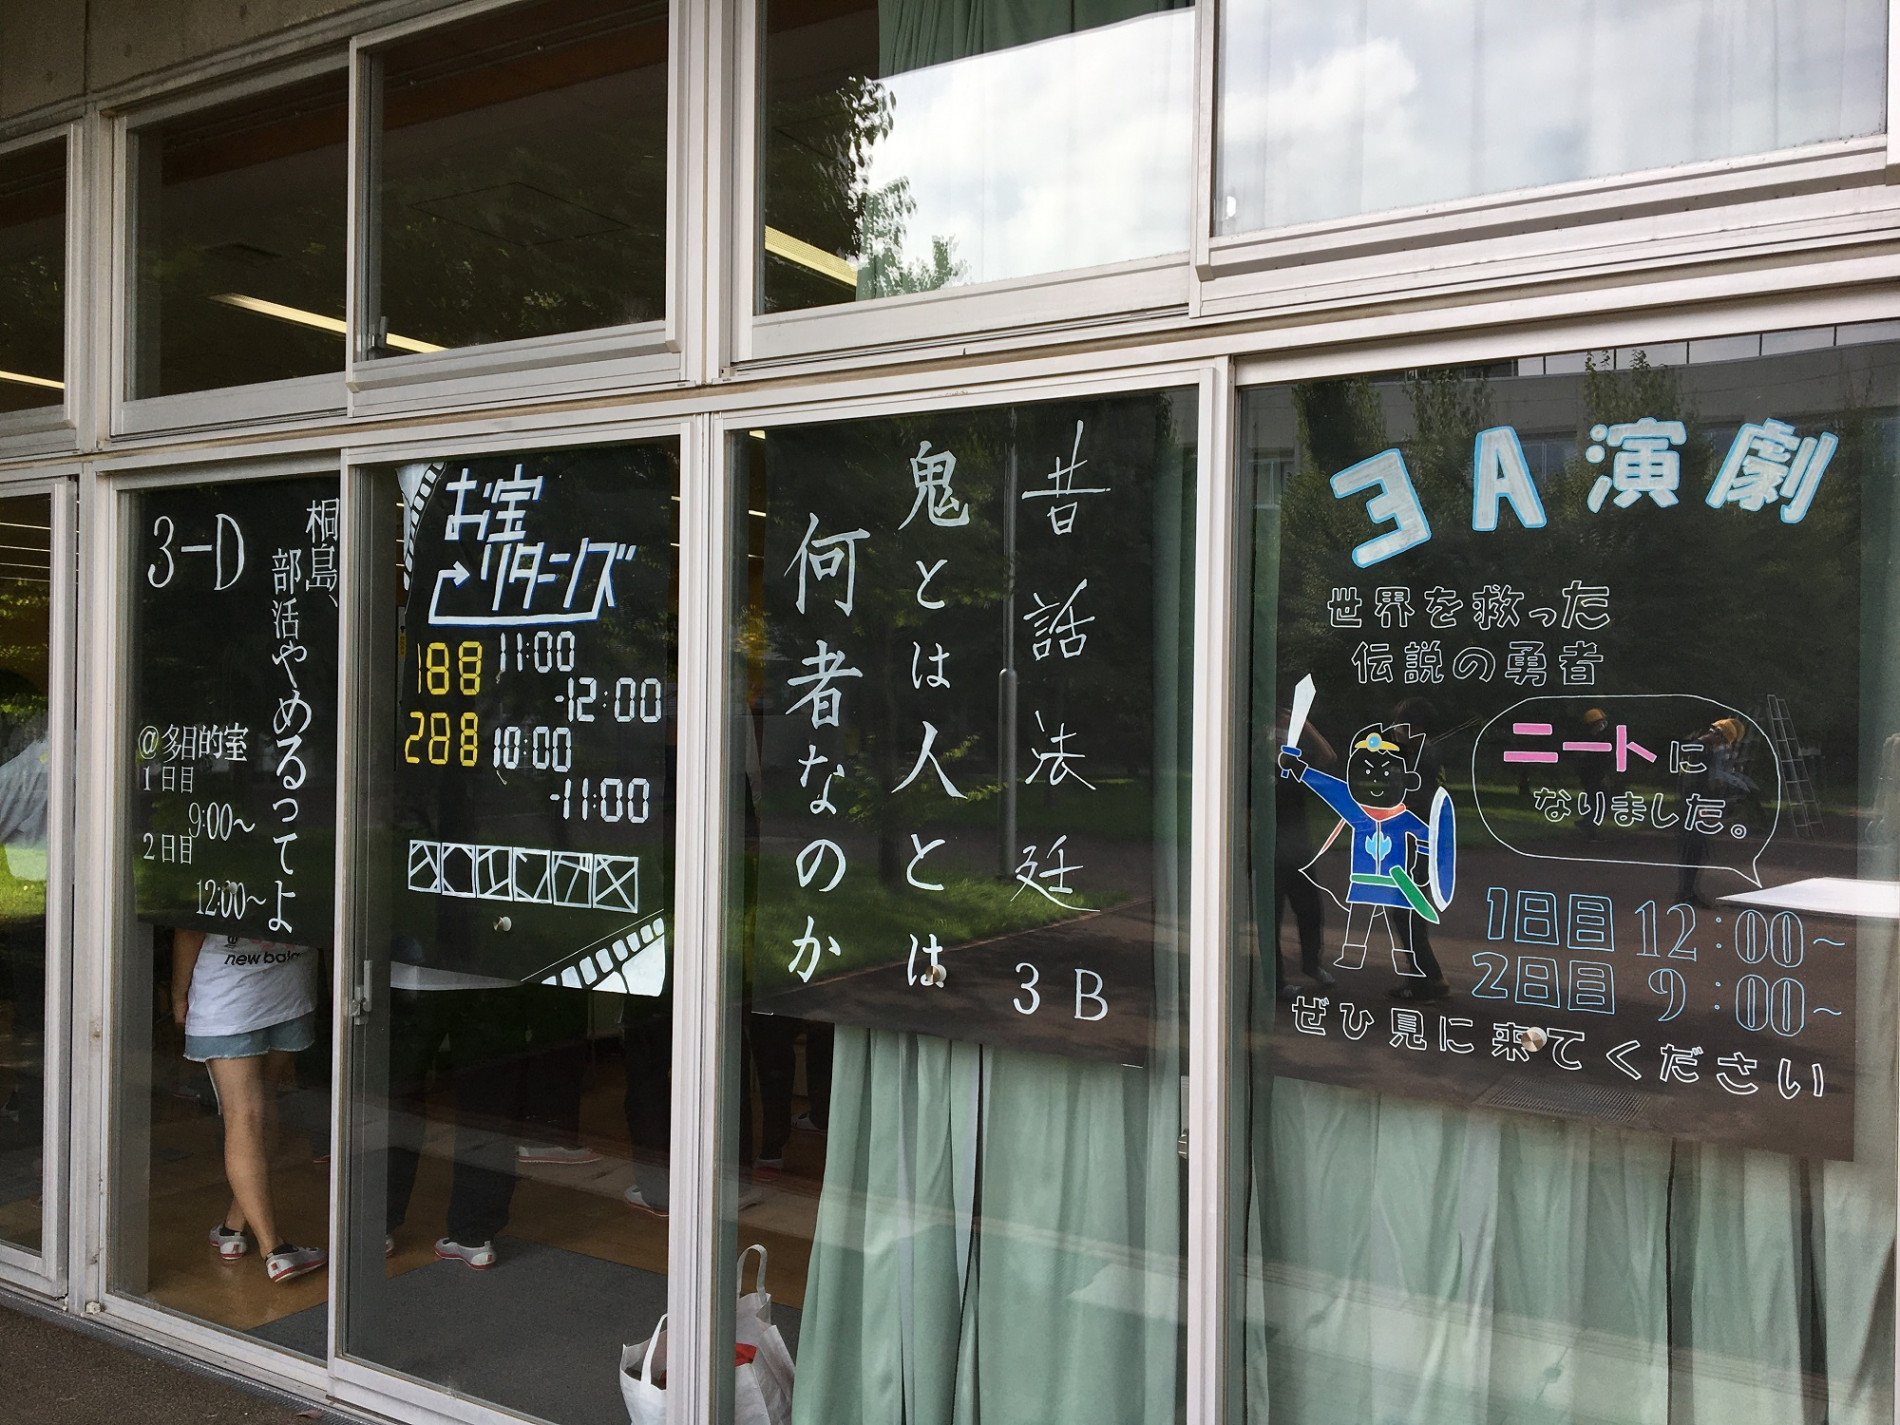 3-D
桐島、
部活やめるってよ
@多目的室
1日目
9:00～
2日目
12:00～
new bala
お宝
リターンズ
1日目 11:00
-12:00
2日目 10:00
-11:00
昔話法廷 3B
鬼とは人とは
何者なのか
3A演劇
世界を救った
伝説の勇者
ニートに
なりました。
1日目 12:00～
2日目 9:00～
ぜひ見に来てください